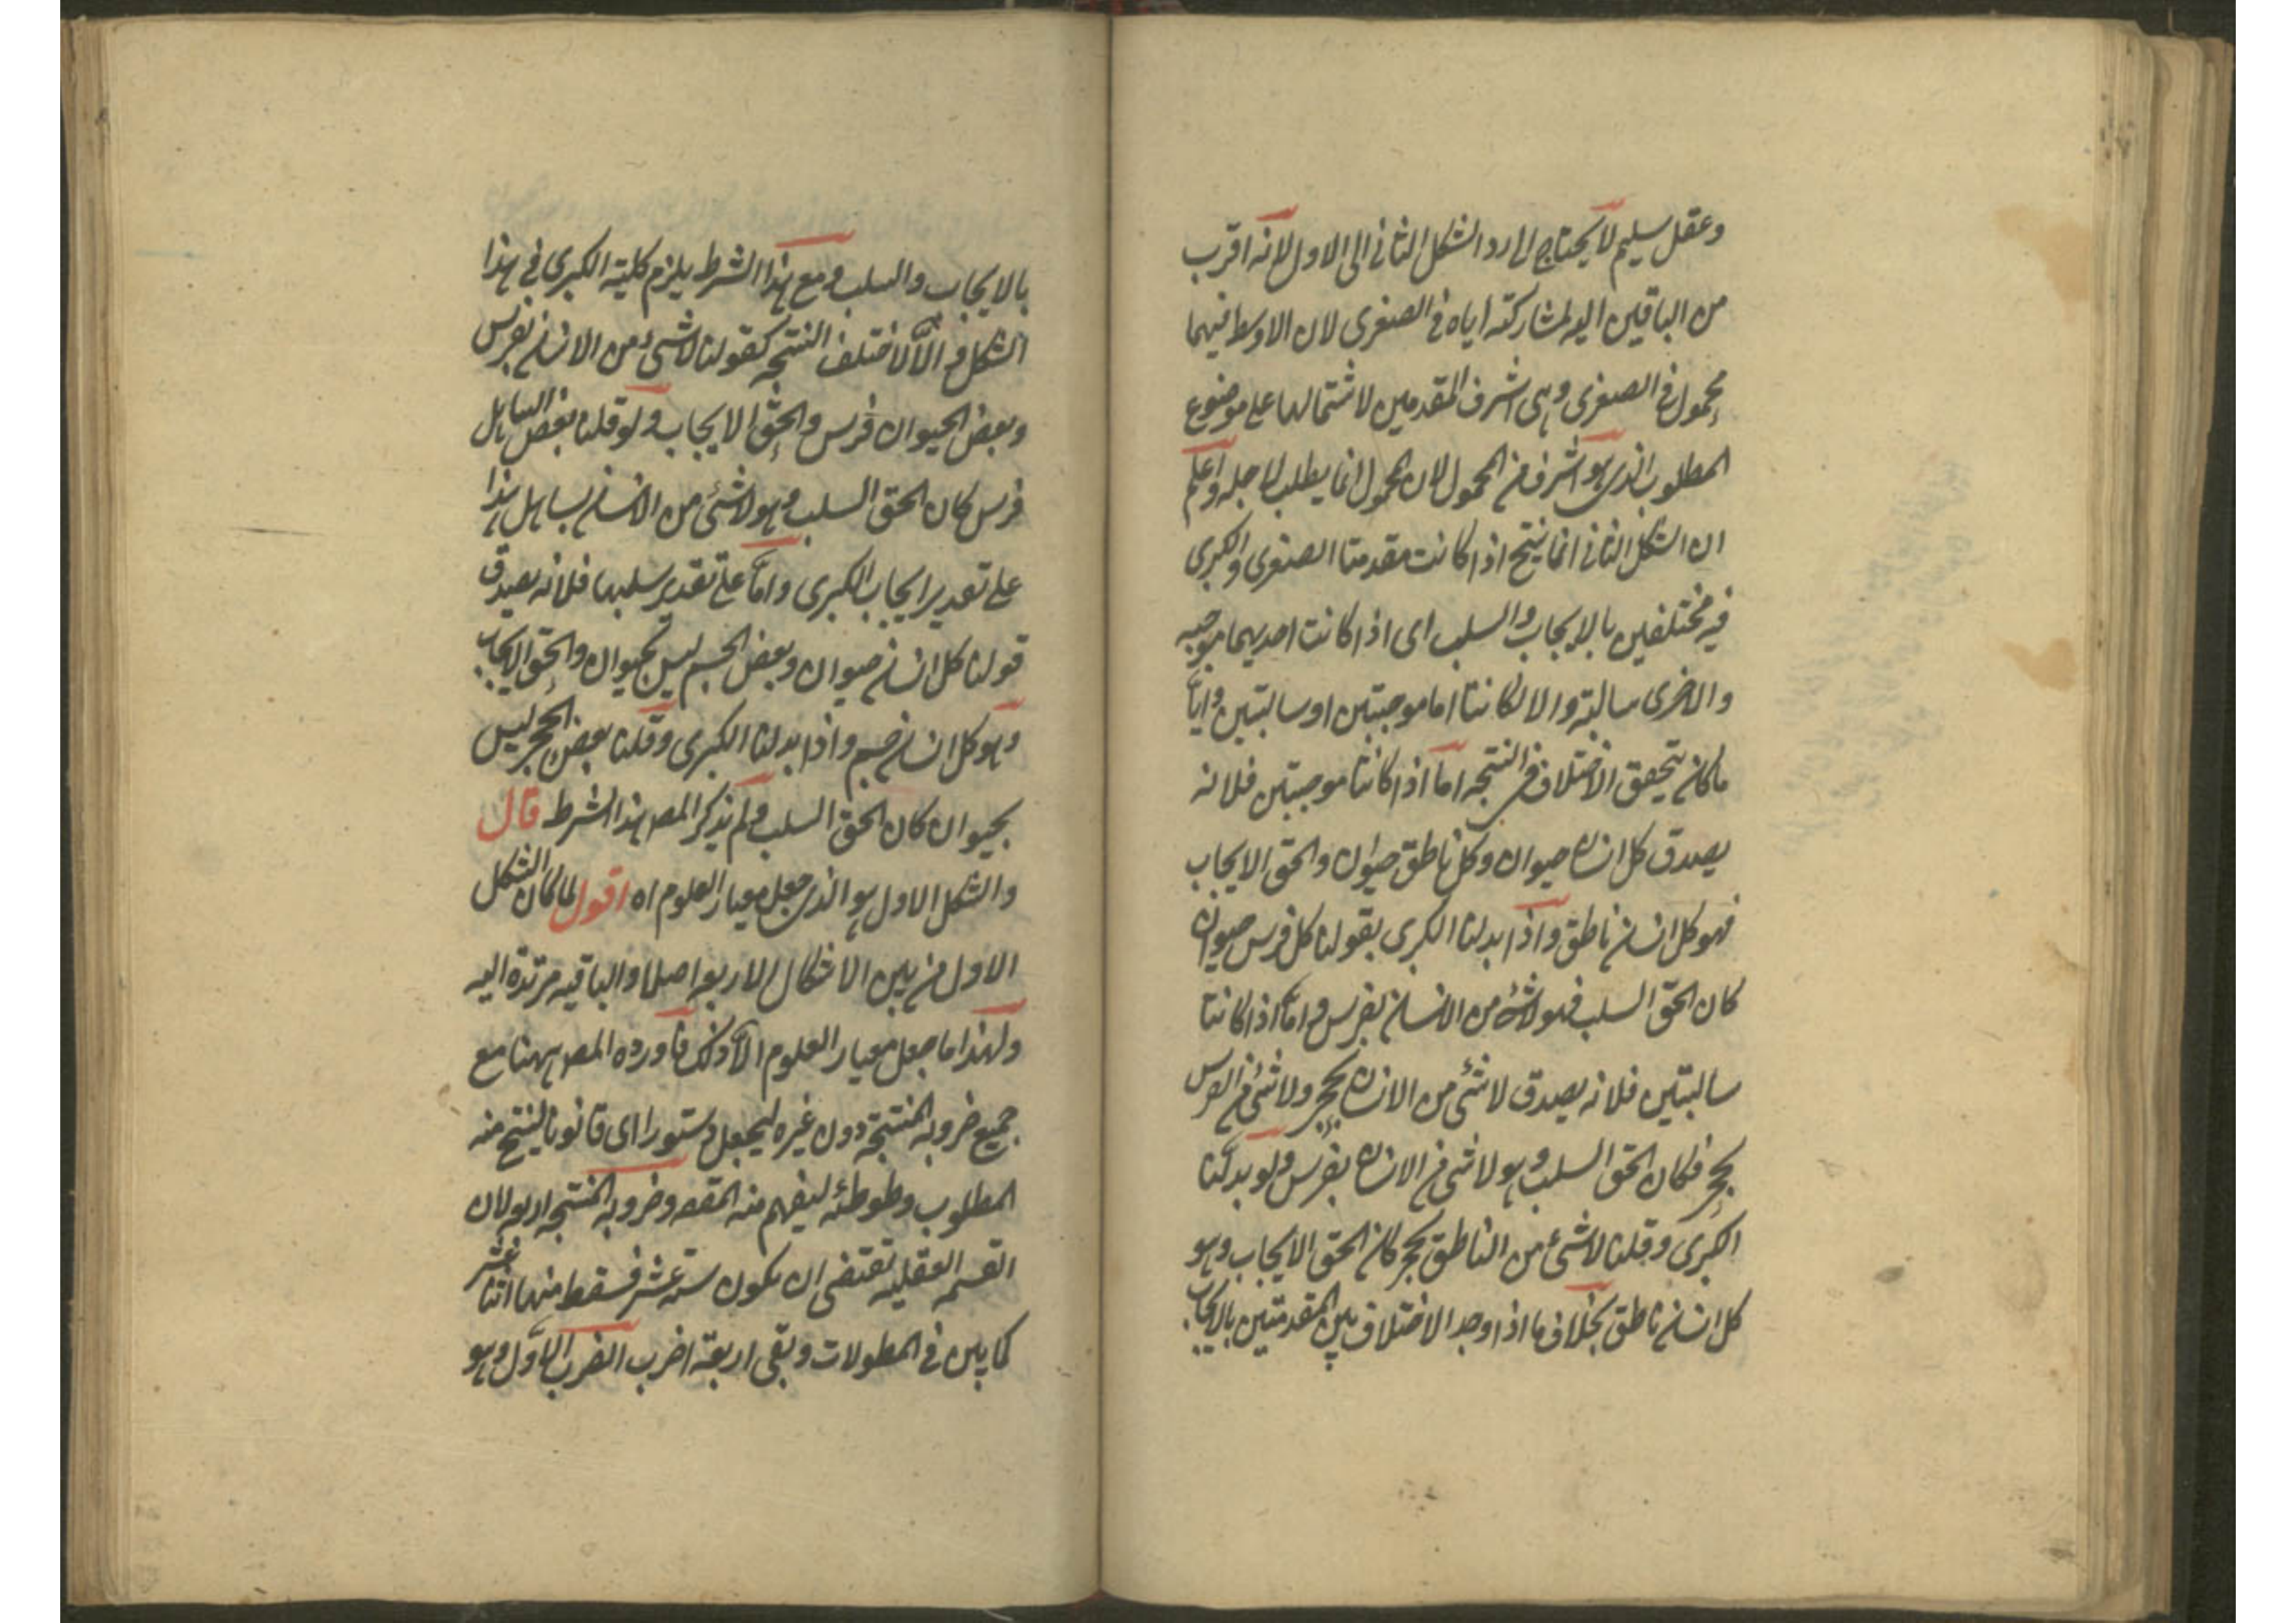 وعقل سليم لا يحتاج الى رد الشكل الثانى الى الاول لانه اقرب
من الباقين اليه لمشاركته اياه فى الصغرى لان الاوسط فيهما
محمول فى الصغرى وهى اشرف المقدمين لاشتمالها على موضوع
المطلوب الذى هو اشرف من المحمول لان المحمول انما يطلب لاجله واعلم
ان الشكل الثانى انما ينتج اذا كانت مقدمتا الصغرى والكبرى
فيه مختلفين بالايجاب والسلب اى اذا كانت احديهما موجبه
والاخرى سالبة والا لكانتا اما موجبتين او سالبتين وايا
ما كان يتحقق الاختلاف فى النتجه اما اذا كانتا موجبتين فلانه
يصدق كل انسان حيوان وكل ناطق حيوان والحق الايجاب
فهو كل انسان ناطق واذا بدلنا الكبرى بقولنا كل فرس حيوان
كان الحق السلب فهو لا شئ من الانسان بفرس واما اذا كانتا
سالبتين فلانه يصدق لا شئ من الانسان بحجر ولا شئ من الفرس
بحجر فكان الحق السلب وهو لا شئ من الانسان بفرس ولو بدلنا
الكبرى وقلنا لا شئ من الناطق بحجر كان الحق الايجاب وهو
كل انسان ناطق بخلاف ما اذا وجد الاختلاف بين المقدمتين بالايجاب
بالايجاب والسلب ومع هذا الشرط يلزم كلية الكبرى فى هذا
الشكل والا لاختلف النتجه كقولنا لا شئ من الانسان بفرس
وبعض الحيوان فرس والحق الايجاب ولو قلنا بعض الساهل
فرس كان الحق السلب وهو لا شئ من الانسان بساهل هذا
على تقدير ايجاب الكبرى واما على تقدير سلبها فلانه يصدق
قولنا كل انسان حيوان وبعض الجسم ليس بحيوان والحق الايجاب
وهو كل انسان جسم واذا بدلنا الكبرى وقلنا بعض الحجر ليس
بحيوان كان الحق السلب ولم يذكر المصـ هذا الشرط قال
والشكل الاول هو الذى جعل معيار العلوم اه اقول لما كان الشكل
الاول من بين الاشكال الاربعه اصلا والباقيه مرتدة اليه
ولهذا ما جعل معيار العلوم الا ذلك فاورده المصـ ههنا مع
جميع ضروبه المنتجة دون غيره ليجعل دستورا اى قانونا لينتج منه
المطلوب وطوطئه ليفهم منه المقصـ وضروبه المنتجه اربعه لان
القسمه العقليه تقتضى ان يكون ستة عشر فسقط منها اثنا عشر
كما بين فى المطولات وبقى اربعة اضرب الضرب الاول وهو